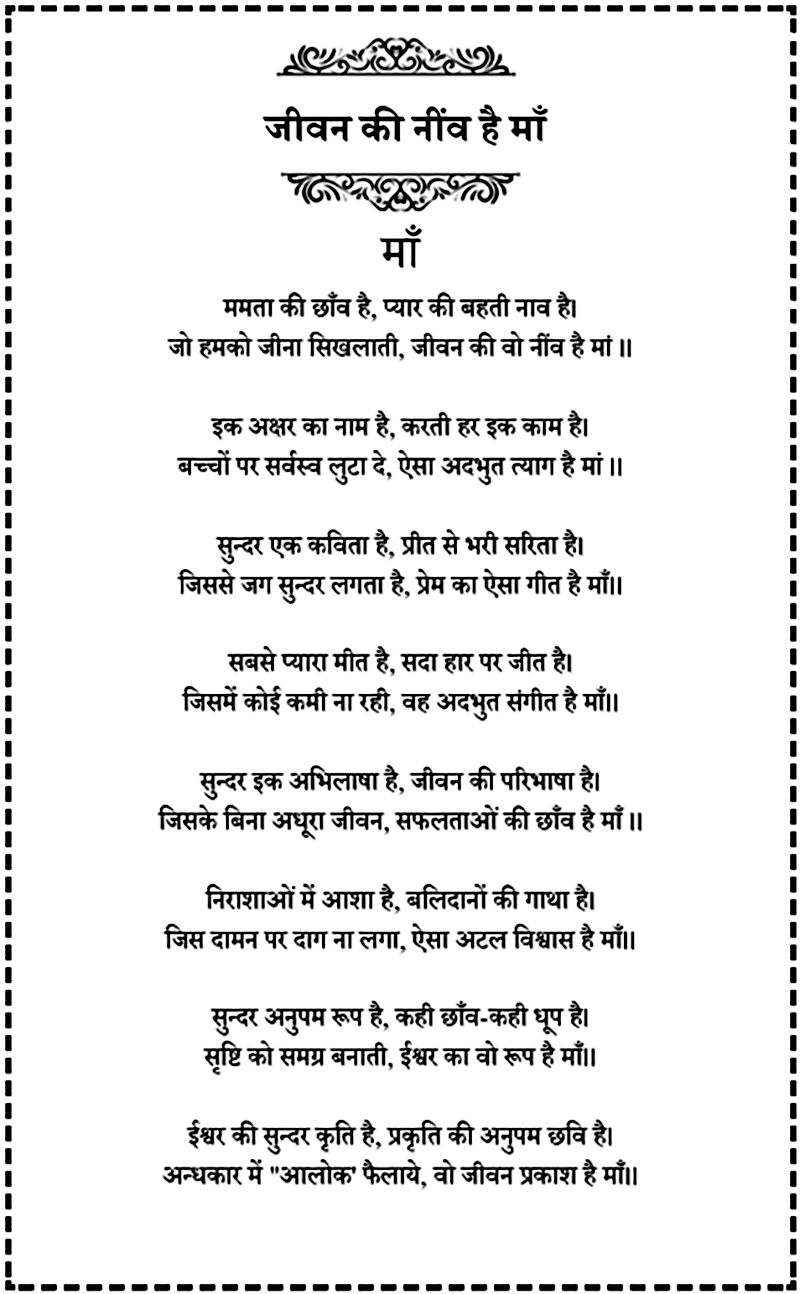 जीवन की नींव है माँ
माँ
ममता की छाँव है, प्यार की बहती नाव है।
जो हमको जीना सिखलाती, जीवन की वो नींव है मां ।।
इक अक्षर का नाम है, करती हर इक काम है।
बच्चों पर सर्वस्व लुटा दे, ऐसा अदभुत त्याग है मां ।।
सुन्दर एक कविता है, प्रीत से भरी सरिता है।
जिससे जग सुन्दर लगता है, प्रेम का ऐसा गीत है माँ।।
सबसे प्यारा मीत है, सदा हार पर जीत है।
जिसमें कोई कमी ना रही, वह अदभुत संगीत है माँ।।
सुन्दर इक अभिलाषा है, जीवन की परिभाषा है।
जिसके बिना अधूरा जीवन, सफलताओं की छाँव है माँ ।।
निराशाओं में आशा है, बलिदानों की गाथा है।
जिस दामन पर दाग ना लगा, ऐसा अटल विश्वास है माँ।।
सुन्दर अनुपम रूप है, कही छाँव-कही धूप है।
सृष्टि को समग्र बनाती, ईश्वर का वो रूप है माँ।।
ईश्वर की सुन्दर कृति है, प्रकृति की अनुपम छवि है।
अन्धकार में "आलोक' फैलाये, वो जीवन प्रकाश है माँ।।